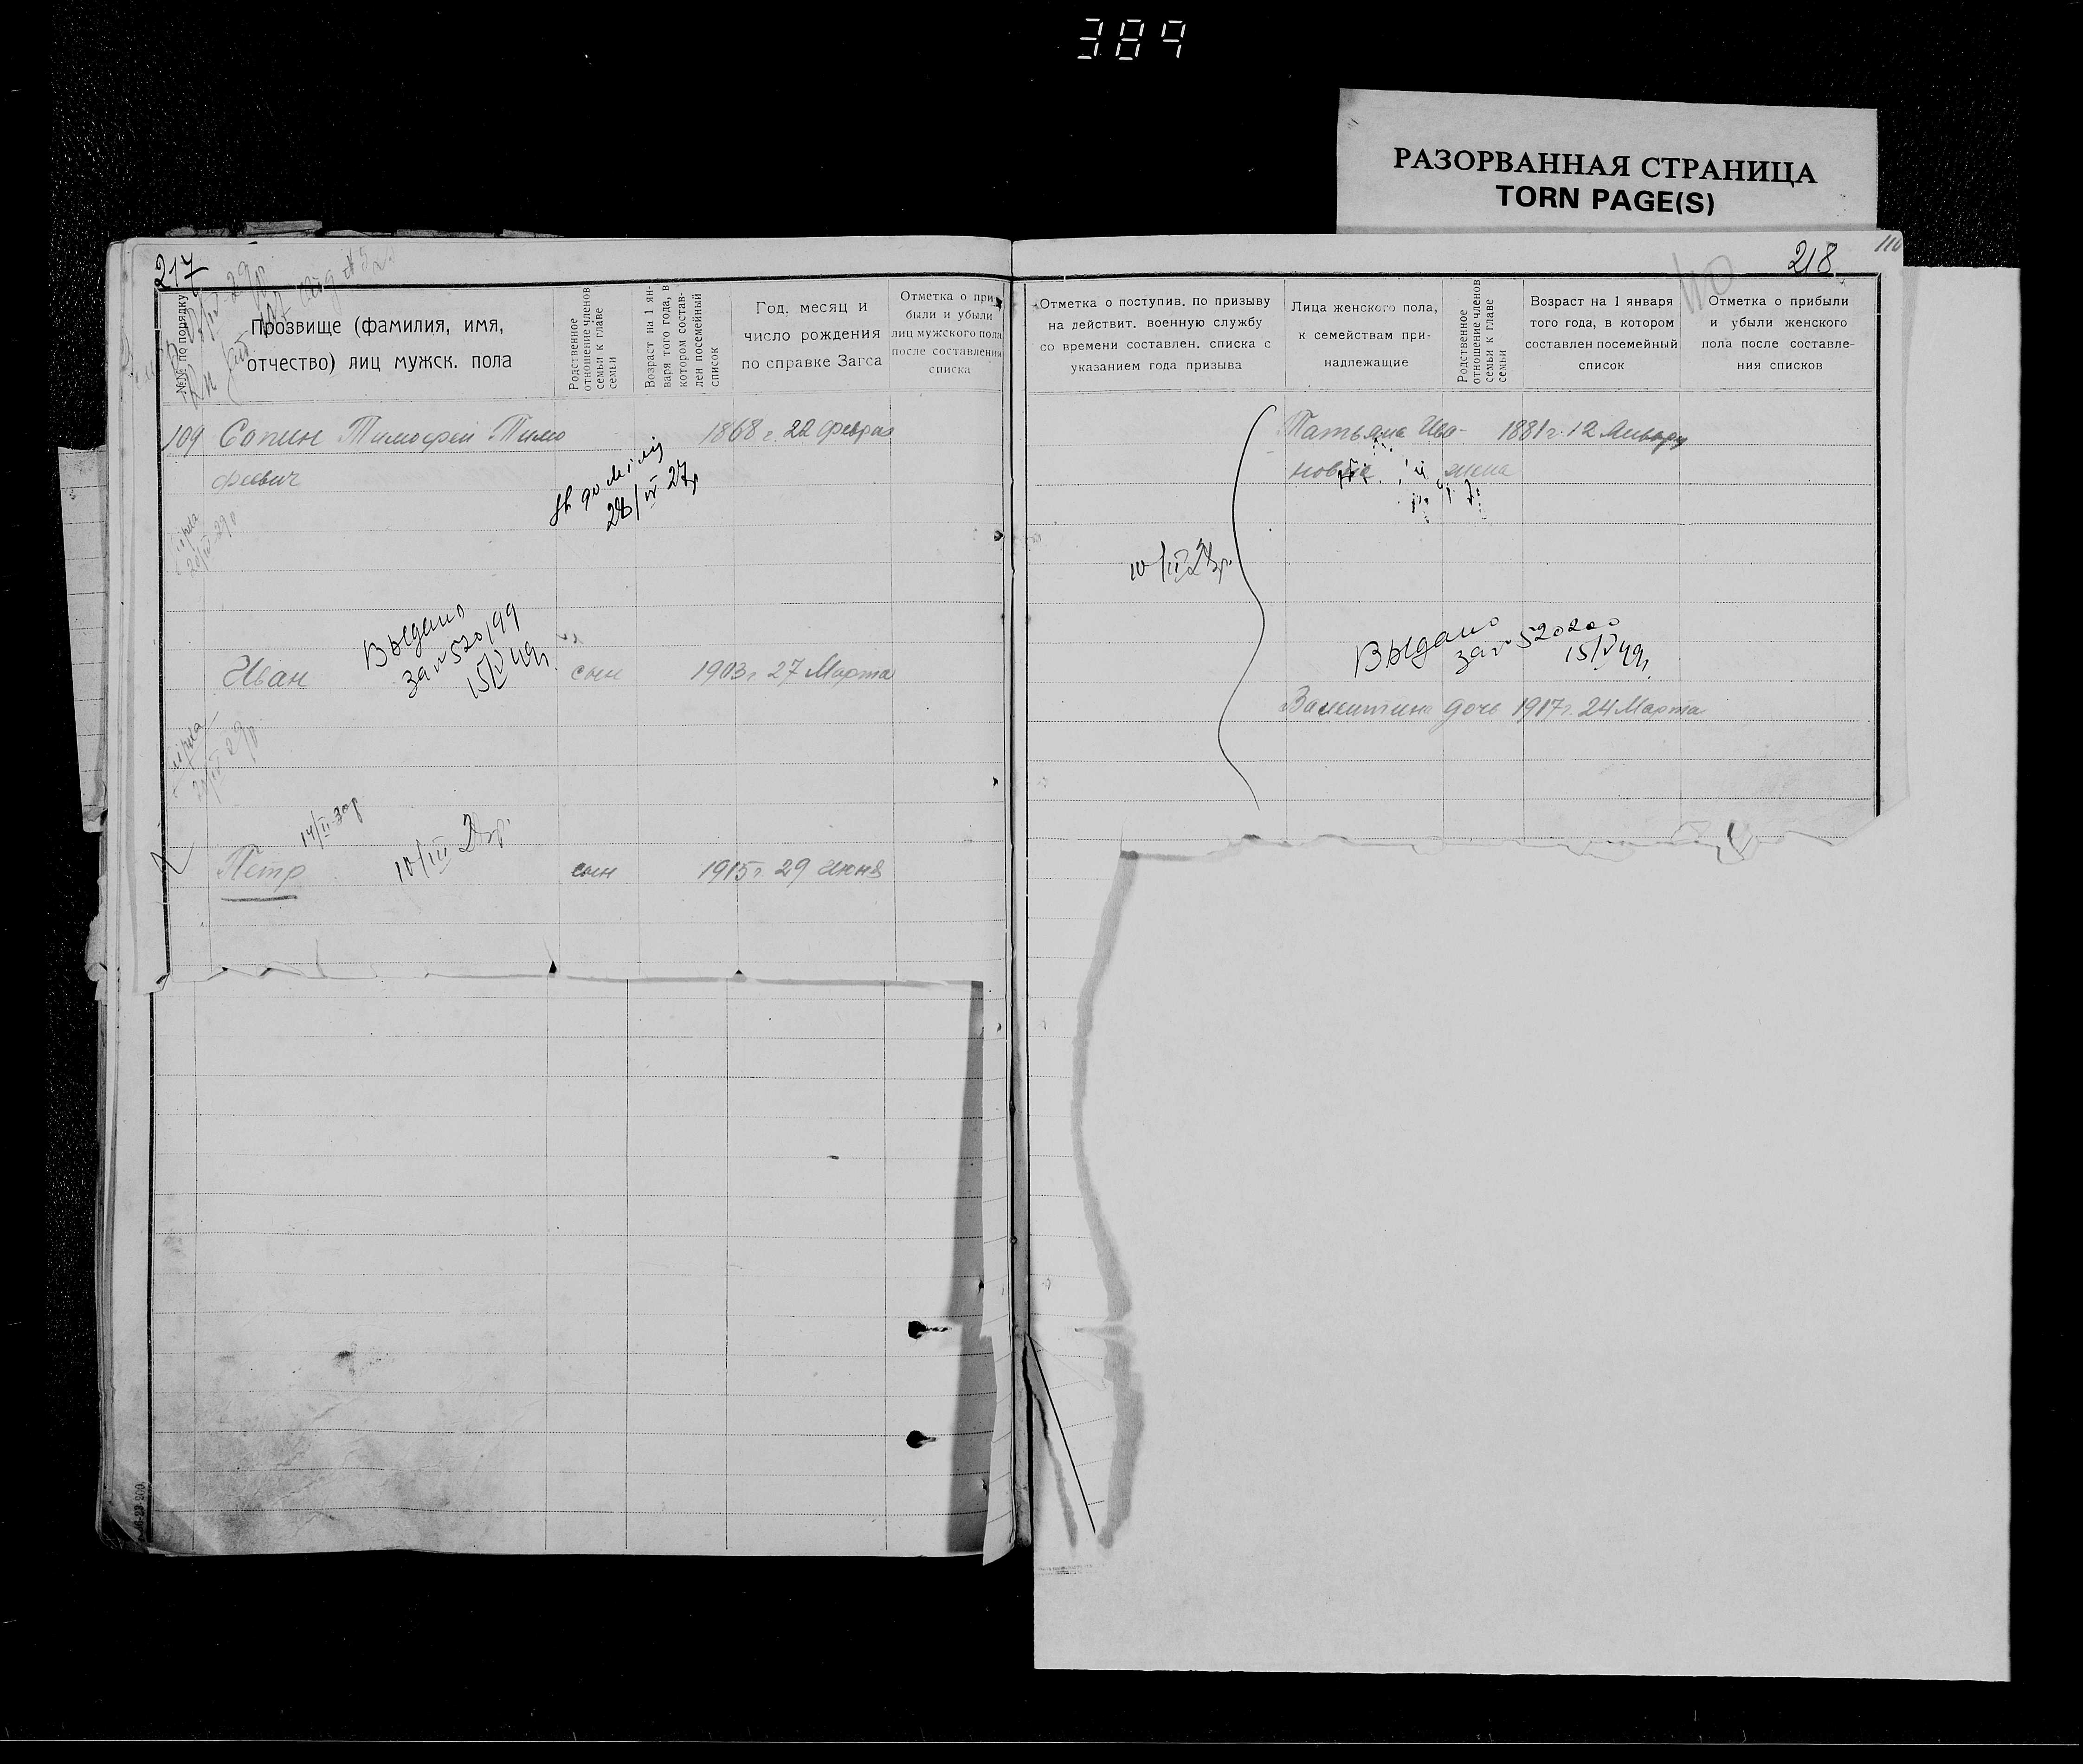 389
РАЗОРВАННАЯ СТРАНИЦА
TORN PAGE(S)
217
№№ по порядку
Прозвище (фамилия, имя,
отчество) лиц мужск. пола
Родственное
отношение членов
семьи к главе
семьи
Возраст на 1 ян-
варя того года, в
котором состав-
лен посемейный
список
Год, месяц и
число рождения
по справке Загса
Отметка о при-
были и убыли
лиц мужского пола
после составления
списка
109 Сопин Тимофей Тимо
феевич
1868 г. 22 Февраля
28/IV 27г
Выдано
за № 520199
15/V 49г.
Иван сын 1903 г. 27 Марта
14/II-30г
10/III 23г.
Петр сын 1915 г. 29 Июня
218
110
110
Отметка о поступив. по призыву
на действит. военную службу
со времени составлен. списка с
указанием года призыва
Лица женского пола,
к семействам при-
надлежащие
Родственное
отношение членов
семьи к главе
семьи
Возраст на 1 января
того года, в котором
составлен посемейный
список
Отметка о прибыли
и убыли женского
пола после составле-
ния списков
Татьяна Ива- 1881 г. 12 Января
новна жена
Выдано
за № 520200
15/V 49г.
Валентина дочь 1917 г. 24 Марта